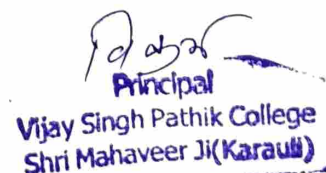 Principal
Vijay Singh Pathik College
Shri Mahaveer Ji(Karauli)